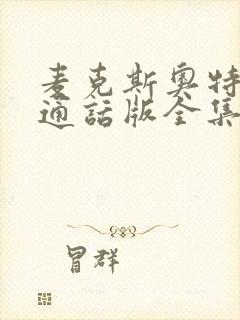 麦克斯奥特
通话版全集
冒群